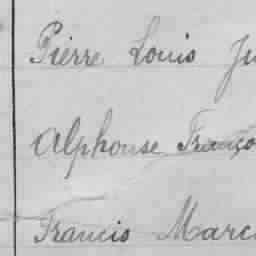 Pierre Louis Ju
Alphonse Franço
Francis Marc